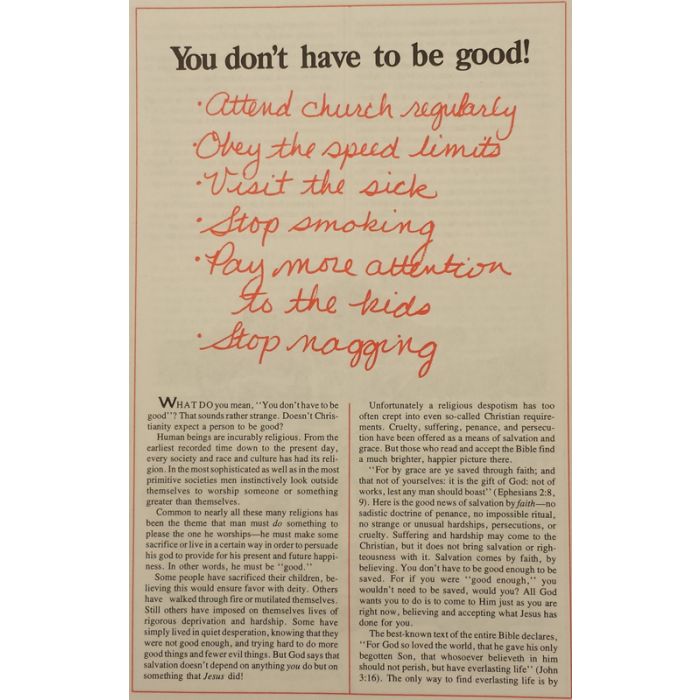 You don't have to be good!
·Attend church regularly
·Obey the speed limits
·Visit the sick
·Stop smoking
·Pay more attention
to the kids
·Stop nagging
WHAT DO you mean, "You don't have to be
good"? That sounds rather strange. Doesn't Chris-
tianity expect a person to be good?
Human beings are incurably religious. From the
earliest recorded time down to the present day,
every society and race and culture has had its reli-
gion. In the most sophisticated as well as in the most
primitive societies men instinctively look outside
themselves to worship someone or something
greater than themselves.
Common to nearly all these many religions has
been the theme that man must do something to
please the one he worships—he must make some
sacrifice or live in a certain way in order to persuade
his god to provide for his present and future happi-
ness. In other words, he must be "good."
Some people have sacrificed their children, be-
lieving this would ensure favor with deity. Others
have walked through fire or mutilated themselves.
Still others have imposed on themselves lives of
rigorous deprivation and hardship. Some have
simply lived in quiet desperation, knowing that they
were not good enough, and trying hard to do more
good things and fewer evil things. But God says that
salvation doesn't depend on anything you do but on
something that Jesus did!
Unfortunately a religious despotism has too
often crept into even so-called Christian require-
ments. Cruelty, suffering, penance, and persecu-
tion have been offered as a means of salvation and
grace. But those who read and accept the Bible find
a much brighter, happier picture there.
"For by grace are ye saved through faith; and
that not of yourselves: it is the gift of God: not of
works, lest any man should boast" (Ephesians 2:8,
9). Here is the good news of salvation by faith—no
sadistic doctrine of penance, no impossible ritual,
no strange or unusual hardships, persecutions, or
cruelty. Suffering and hardship may come to the
Christian, but it does not bring salvation or righ-
teousness with it. Salvation comes by faith, by
believing. You don't have to be good enough to be
saved. For if you were "good enough," you
wouldn't need to be saved, would you? All God
wants you to do is to come to Him just as you are
right now, believing and accepting what Jesus has
done for you.
The best-known text of the entire Bible declares,
"For God so loved the world, that he gave his only
begotten Son, that whosoever believeth in him
should not perish, but have everlasting life" (John
3:16). The only way to find everlasting life is by